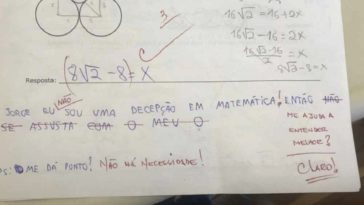 3.
16√2 = 16 + 2x
16√2 - 16 = 2x
16√2 - 16 = x
2
8√2 - 8 = x
Resposta: (8√2 - 8) = x C
NÃO
JORGE EU SOU UMA DECEPÇÃO EM MATEMÁTICA! ENTÃO NÃO
SE ASSUSTA COM O MEU 0
ME AJUDA A
ENTENDER
MELHOR?
PS: ME DÁ PONTO! NÃO HÁ NECECIDADE!
CLARO!